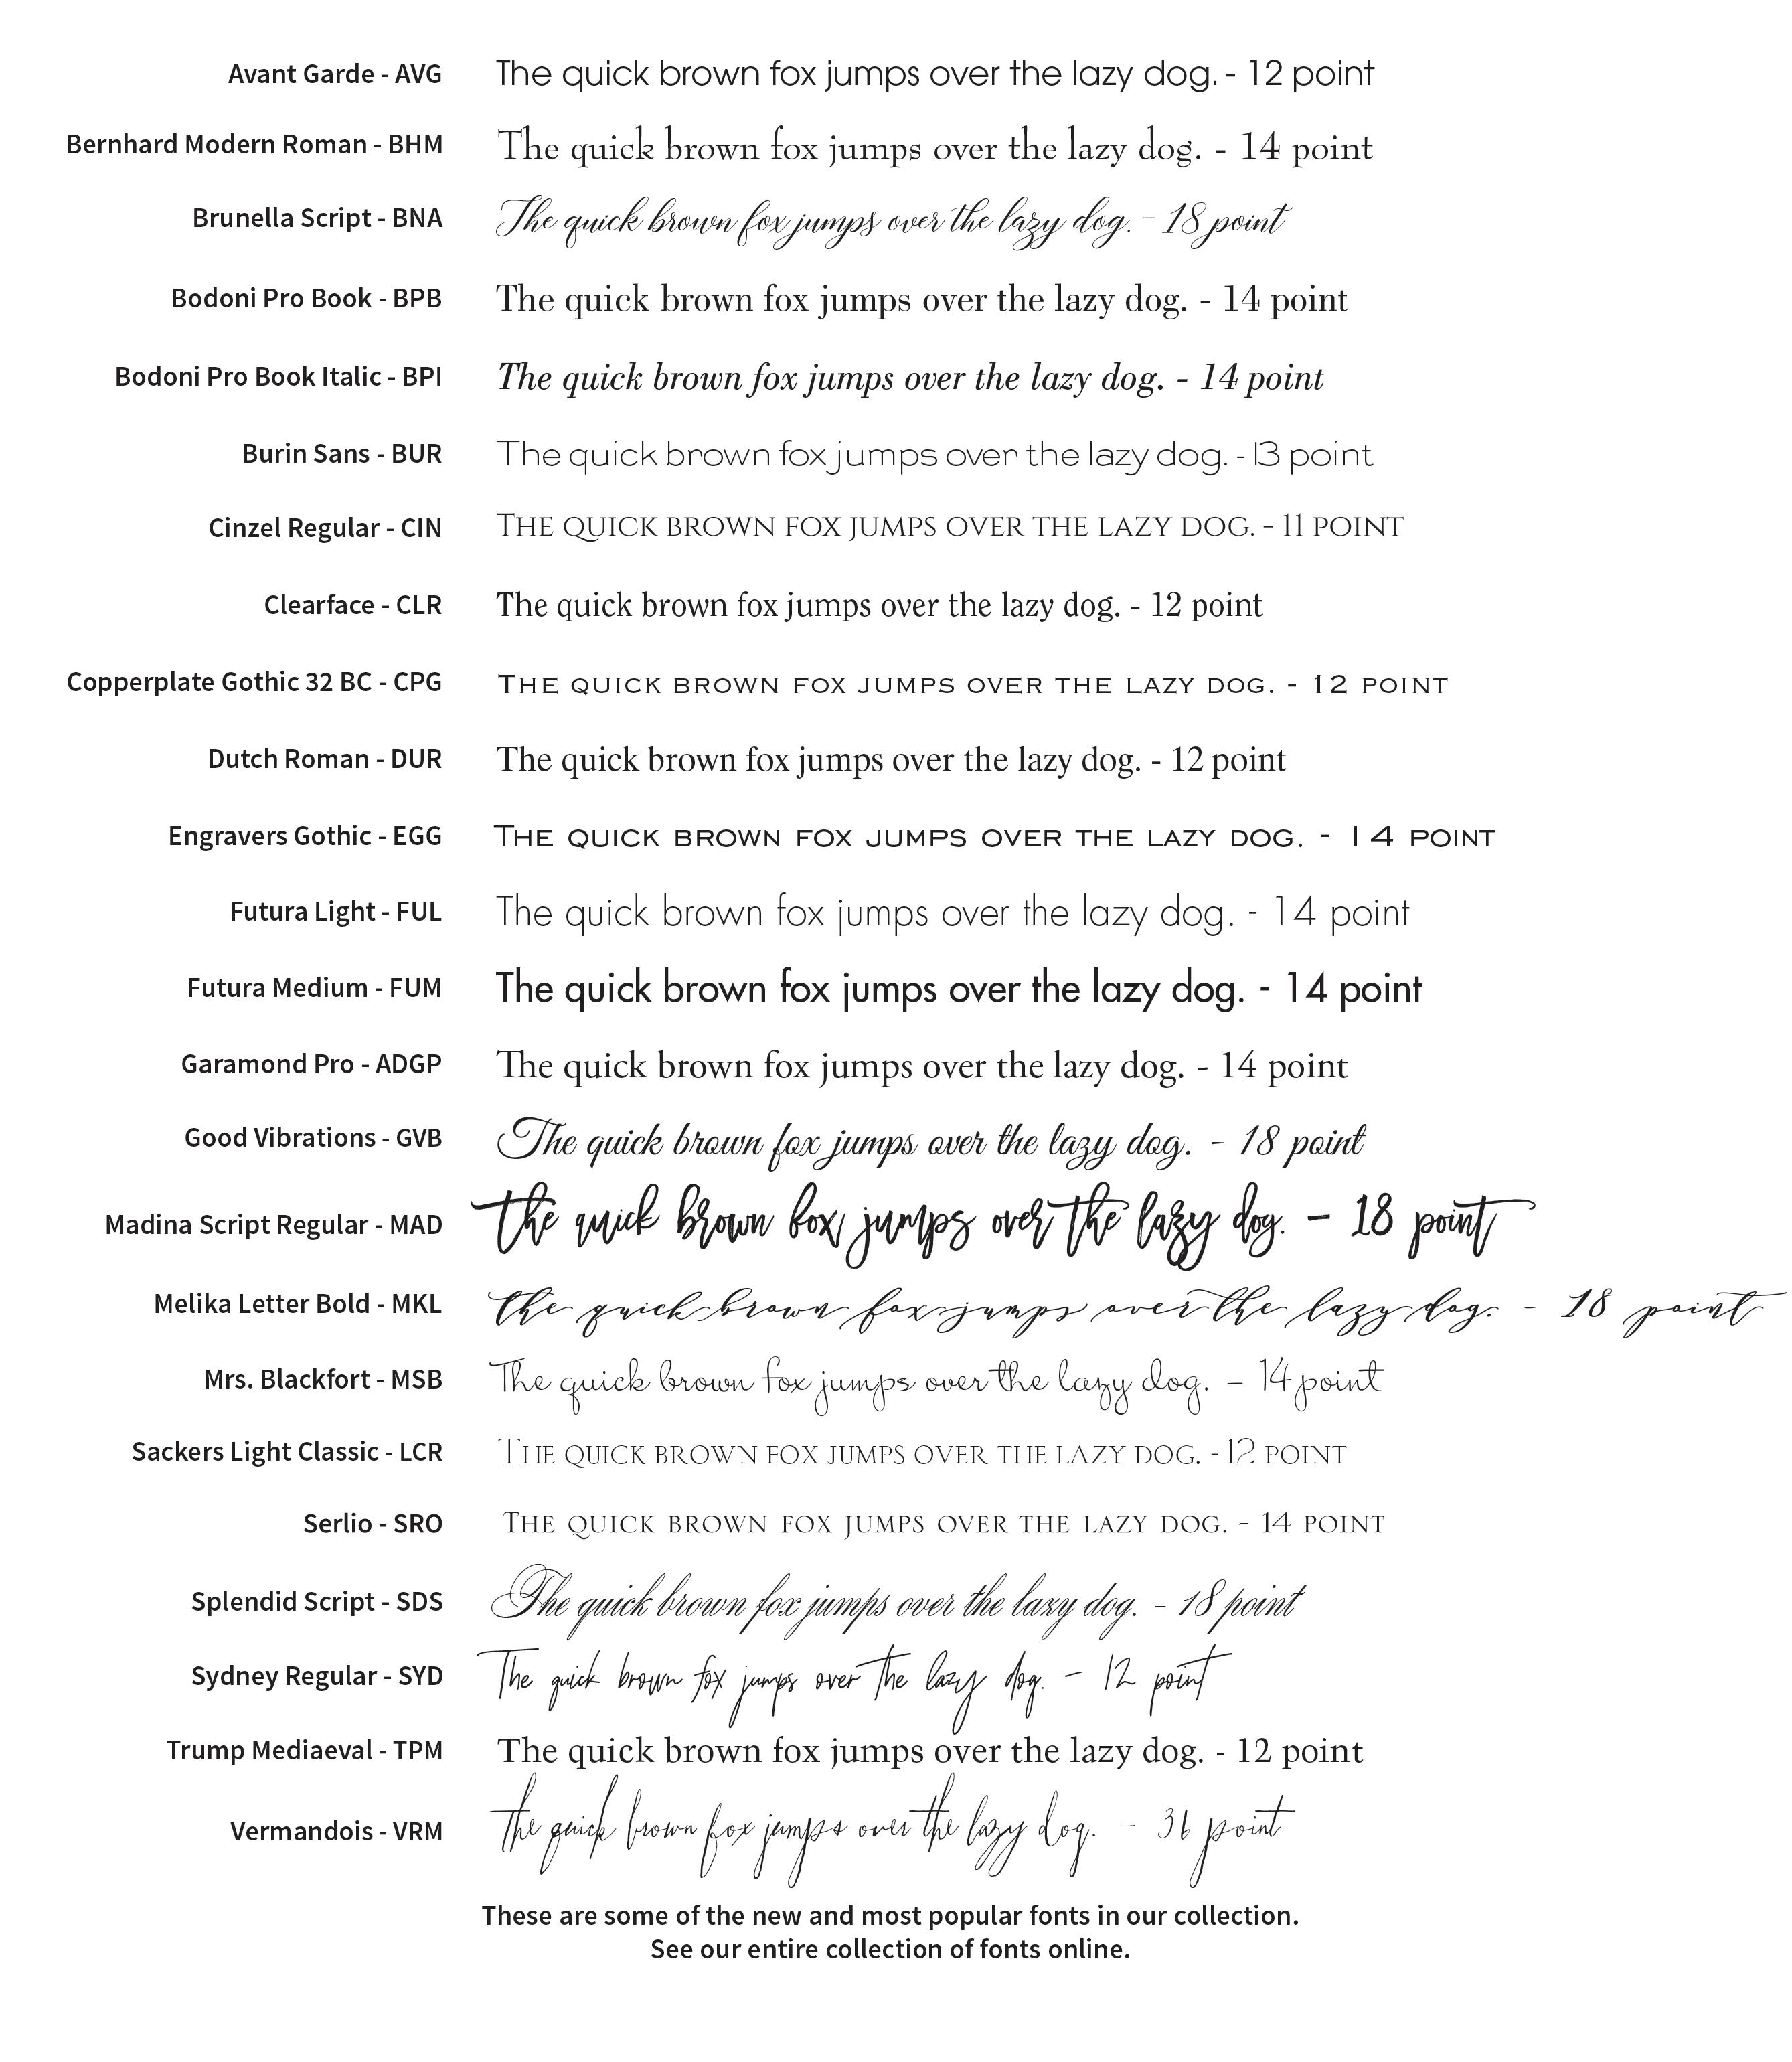 Avant Garde - AVG The quick brown fox jumps over the lazy dog. - 12 point
Bernhard Modern Roman - BHM The quick brown fox jumps over the lazy dog. - 14 point
Brunella Script - BNA The quick brown fox jumps over the lazy dog. - 18 point
Bodoni Pro Book - BPB The quick brown fox jumps over the lazy dog. - 14 point
Bodoni Pro Book Italic - BPI The quick brown fox jumps over the lazy dog. - 14 point
Burin Sans - BUR The quick brown fox jumps over the lazy dog. - 13 point
Cinzel Regular - CIN THE QUICK BROWN FOX JUMPS OVER THE LAZY DOG. - 11 POINT
Clearface - CLR The quick brown fox jumps over the lazy dog. - 12 point
Copperplate Gothic 32 BC - CPG THE QUICK BROWN FOX JUMPS OVER THE LAZY DOG. - 12 POINT
Dutch Roman - DUR The quick brown fox jumps over the lazy dog. - 12 point
Engravers Gothic - EGG THE QUICK BROWN FOX JUMPS OVER THE LAZY DOG. - 14 POINT
Futura Light - FUL The quick brown fox jumps over the lazy dog. - 14 point
Futura Medium - FUM The quick brown fox jumps over the lazy dog. - 14 point
Garamond Pro - ADGP The quick brown fox jumps over the lazy dog. - 14 point
Good Vibrations - GVB The quick brown fox jumps over the lazy dog. - 18 point
Madina Script Regular - MAD the quick brown fox jumps over the lazy dog. - 18 point
Melika Letter Bold - MKL the quick brown fox jumps over the lazy dog. - 18 point
Mrs. Blackfort - MSB The quick brown fox jumps over the lazy dog. - 14 point
Sackers Light Classic - LCR THE QUICK BROWN FOX JUMPS OVER THE LAZY DOG. - 12 POINT
Serlio - SRO THE QUICK BROWN FOX JUMPS OVER THE LAZY DOG. - 14 POINT
Splendid Script - SDS The quick brown fox jumps over the lazy dog. - 18 point
Sydney Regular - SYD The quick brown fox jumps over the lazy dog. - 12 point
Trump Mediaeval - TPM The quick brown fox jumps over the lazy dog. - 12 point
Vermandois - VRM the quick brown fox jumps over the lazy dog. - 36 point
These are some of the new and most popular fonts in our collection.
See our entire collection of fonts online.